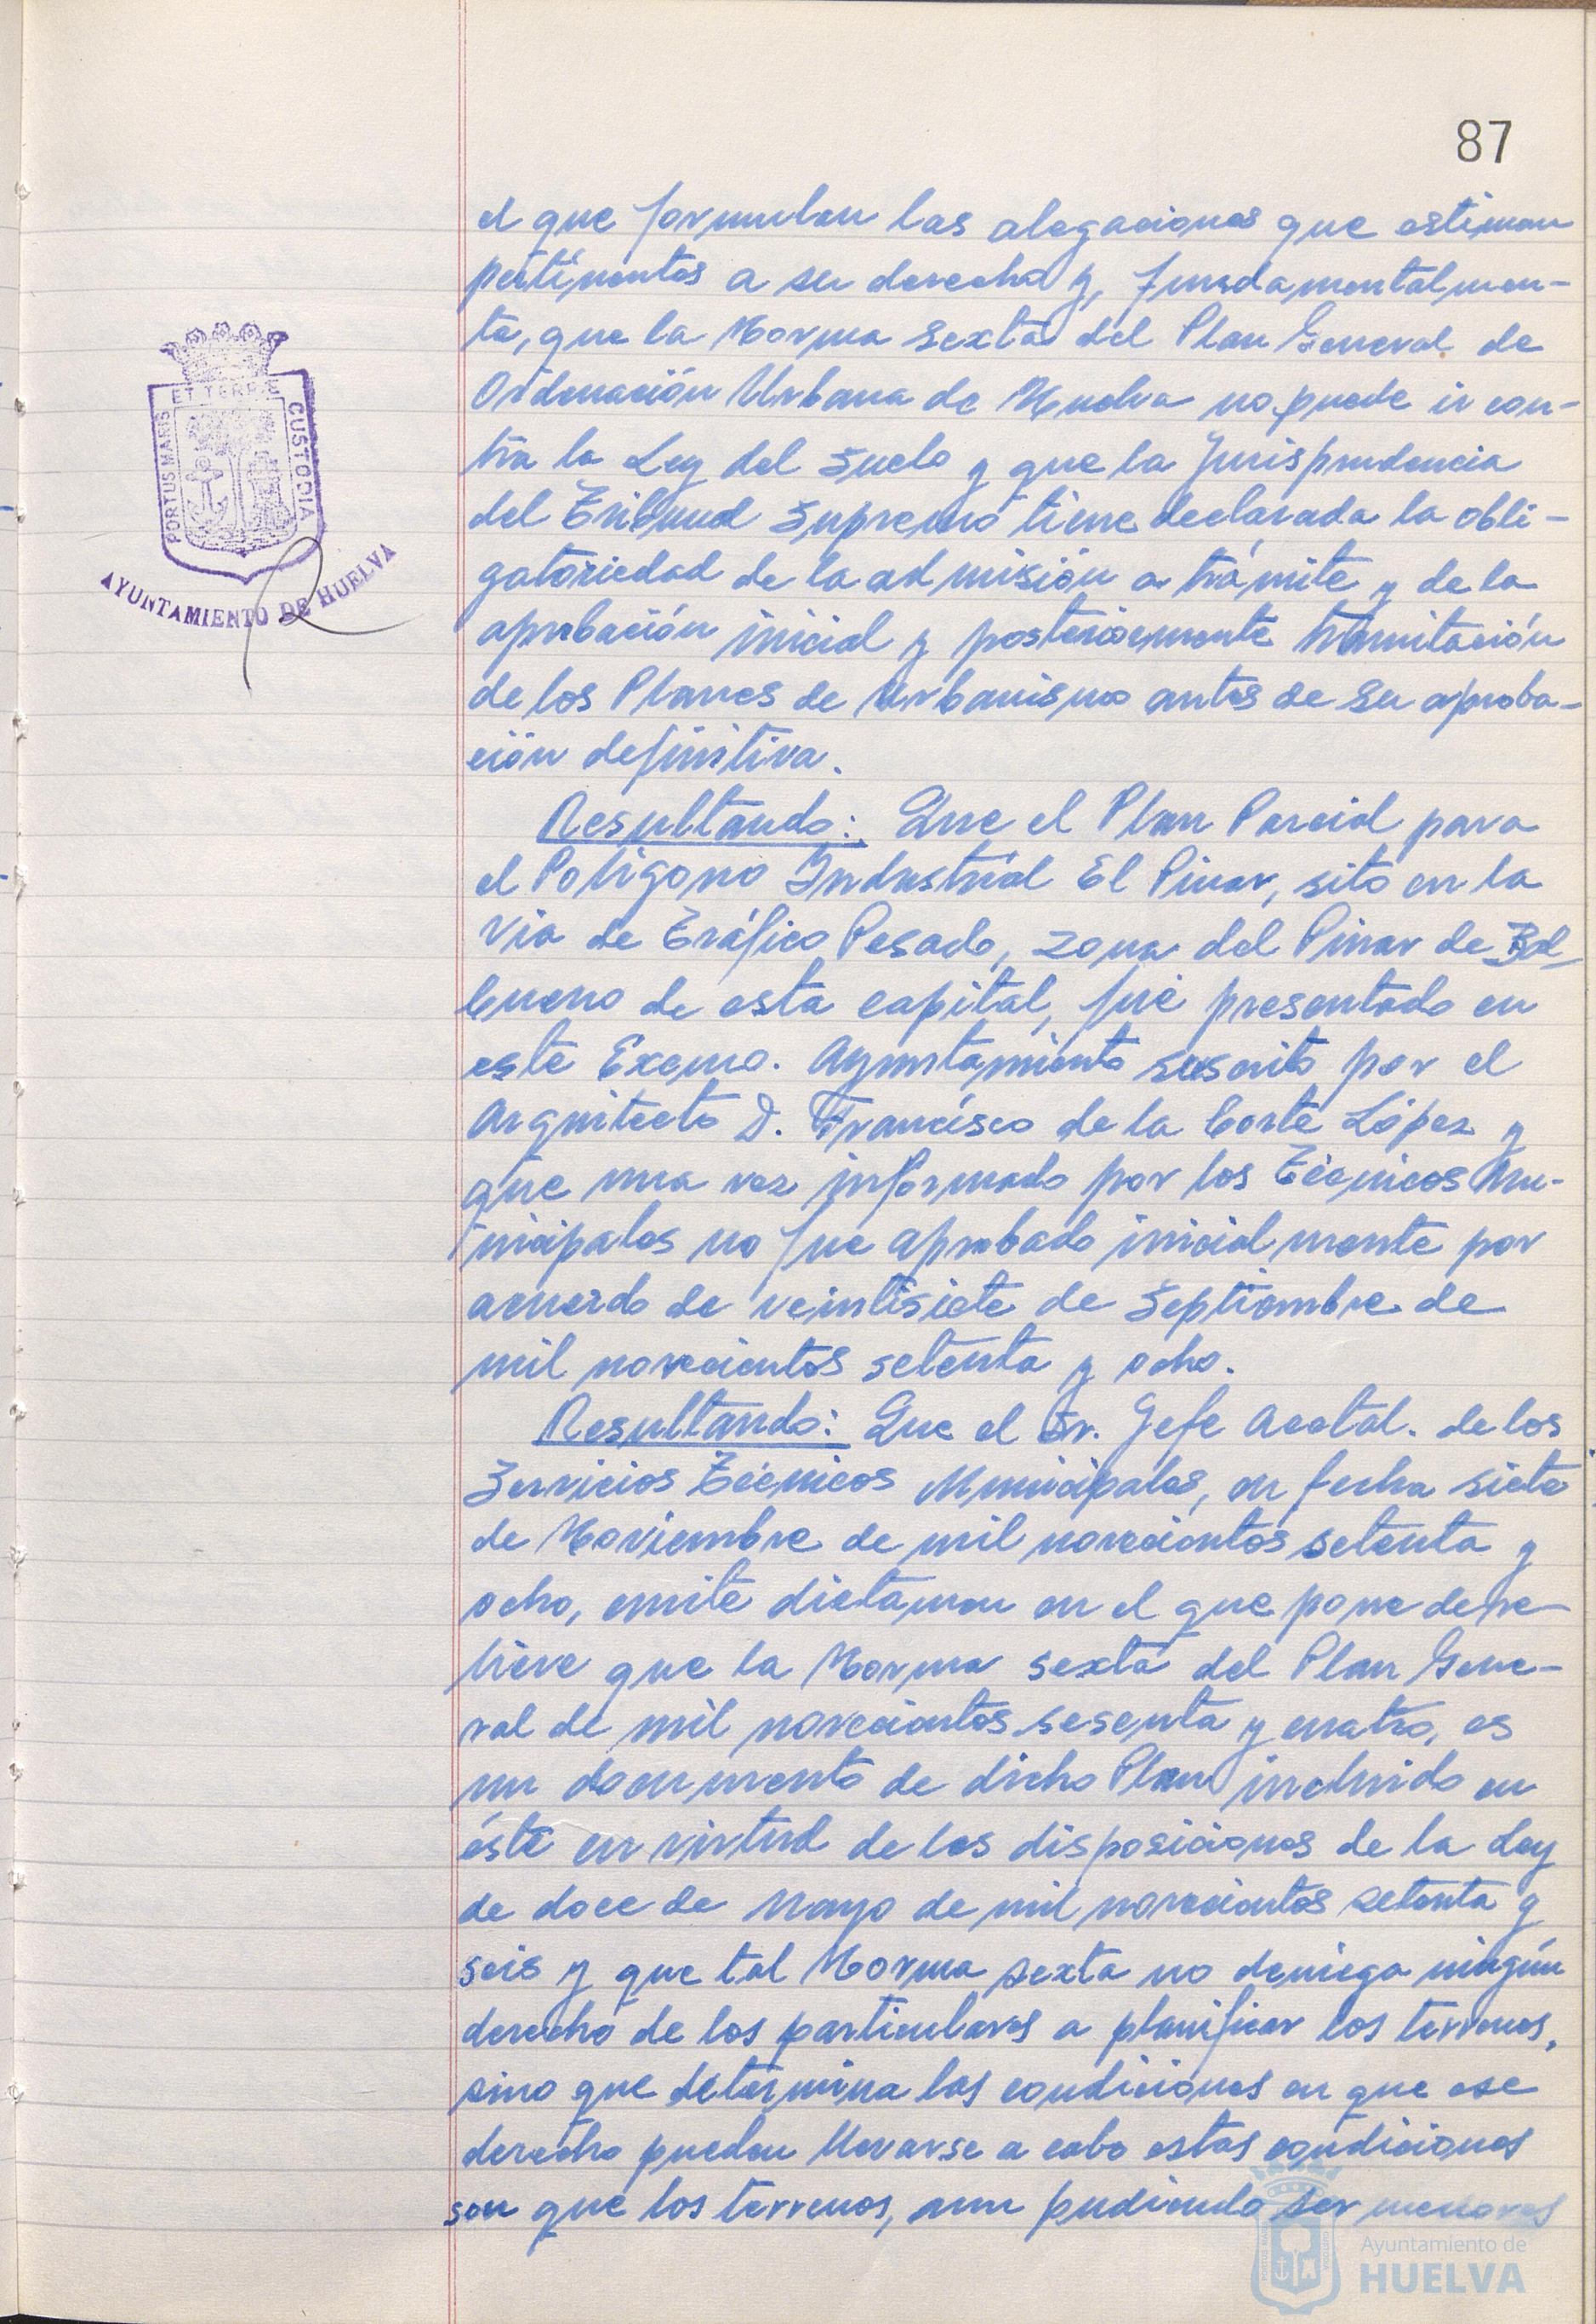 87
el que formulan las alegaciones que estiman
pertinentes a su derecho y, fundamentalmen-
te, que la Norma Sexta del Plan General de
Ordenación Urbana de Huelva no puede ir con-
tra la Ley del Suelo y que la Jurisprudencia
del Tribunal Supremo tiene declarada la obli-
gatoriedad de la admisión a trámite y de la
aprobación inicial y posteriormente tramitación
de los Planes de Urbanismo antes de su aproba-
ción definitiva.
Resultando: Que el Plan Parcial para
el Poligono Industrial El Pinar, sito en la
Via de Tráfico Pesado, zona del Pinar de Bal
bueno de esta capital, fué presentado en
este Excmo. Ayuntamiento suscrito por el
Arquitecto D. Francisco de la Corte López y
que una vez informado por los Técnicos Mu-
nicipales no fue aprobado inicialmente por
acuerdo de veintisiete de Septiembre de
mil novecientos setenta y ocho.
Resultando: Que el Sr. Jefe Acctal. de los
Servicios Técnicos Municipales, en fecha siete
de Noviembre de mil novecientos setenta y
ocho, emite dictamen en el que pone de re-
lieve que la Norma sexta del Plan Gene-
ral de mil novecientos sesenta y cuatro, es
un documento de dicho Plan incluido en
éste en virtud de las disposiciones de la Ley
de doce de Mayo de mil novecientos setenta y
seis y que tal Norma sexta no deniega ningún
derecho de los particulares a planificar los terrenos,
sino que determina las condiciones en que ese
derecho pueden llevarse a cabo estas condiciones
son que los terrenos, aun pudiendo ser menores
PORTUS MARIS ET TERRE CUSTODIA
AYUNTAMIENTO DE HUELVA
Ayuntamiento de
HUELVA